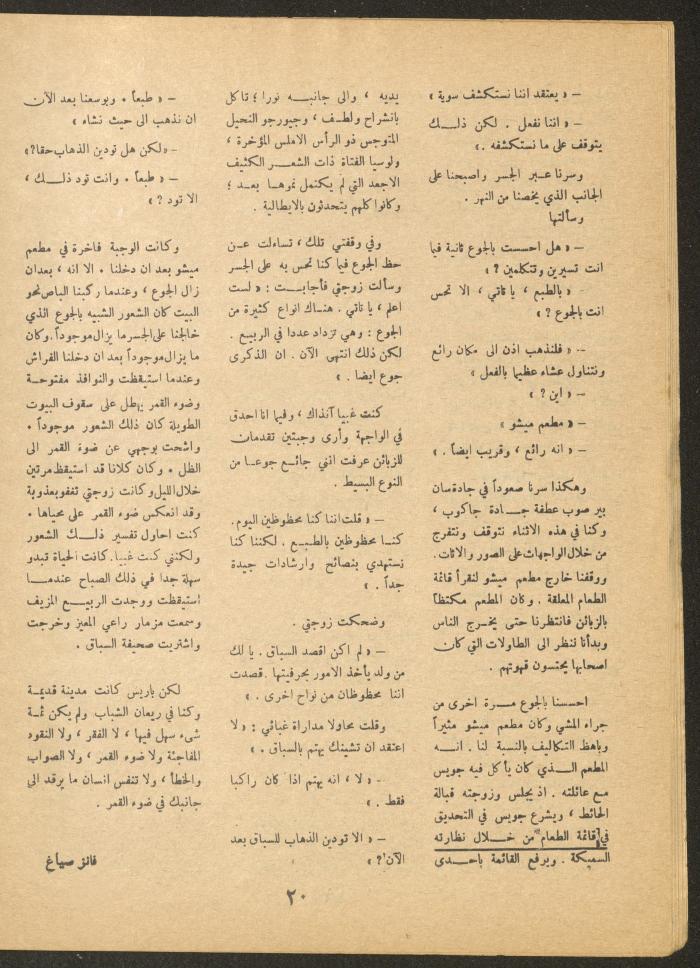 – « يعتقد اننا نستكشف سوية »
– « اننا نفعل . لكن ذلك
يتوقف على ما نستكشفه . »
وسرنا عبر الجسر واصبحنا على
الجانب الذي يخصنا من النهر .
وسألتها
– « هل احسست بالجوع ثانية فيما
انت تسيرين وتتكلمين ? »
– « بالطبع ، يا تاتي ، الا تحس
انت بالجوع ? »
– « فلنذهب اذن الى مكان رائع
ونتناول عشاء عظيما بالفعل »
– « اين ? »
– « مطعم ميشو »
– « انه رائع ، وقريب ايضاً . »
وهكذا سرنا صعوداً في جادة سان
بير صوب عطفة جادة جاكوب ،
وكنا في هذه الاثناء نتوقف ونتفرج
من خلال الواجهات على الصور والاثاث .
ووقفنا خارج مطعم ميشو لنقرأ قائمة
الطعام المعلقة . وكان المطعم مكتظاً
بالزبائن فانتظرنا حتى يخرج الناس
وبدأنا ننظر الى الطاولات التي كان
اصحابها يحتسون قهوتهم .
احسسنا بالجوع مرة اخرى من
جراء المشي وكان مطعم ميشو مثيراً
وباهظ التكاليف بالنسبة لنا . انه
المطعم الذي كان يأكل فيه جويس
مع عائلته . اذ يجلس وزوجته قبالة
الحائط ، ويشرع جويس في التحديق
في قائمة الطعام من خلال نظارته
السميكة . ويرفع القائمة باحدى
يديه ، والى جانبه نورا ؛ تاكل
بانشراح ولطف ، وجيورجو النحيل
المتوجس ذو الرأس الاملس المؤخرة ،
ولوسيا الفتاة ذات الشعر الكثيف
الاجعد التي لم يكتمل نموها بعد ؛
وكانوا كلهم يتحدثون بالايطالية .
وفي وقفتي تلك ، تساءلت عن
حظ الجوع فيما كنا نحس به على الجسر
وسألت زوجتي فأجابت : « لست
اعلم ، يا تاتي . هناك انواع كثيرة من
الجوع : وهي تزداد عددا في الربيع .
لكن ذلك انتهى الآن . ان الذكرى
جوع ايضا . »
كنت غبيا آنذاك ، وفيما انا احدق
في الواجهة وأرى وجبتين تقدمان
للزبائن عرفت انني جائع جوعا من
النوع البسيط .
– « قلت اننا كنا محظوظين اليوم .
كنا محظوظين بالطبع . لكننا كنا
نستهدي بنصائح وارشادات جيدة
جداً . »
وضحكت زوجتي .
– « لم اكن اقصد السباق . يا لك
من ولد يأخذ الامور بحرفيتها . قصدت
اننا محظوظان من نواح اخرى . »
وقلت محاولا مداراة غبائي : « لا
اعتقد ان تشينك يهتم بالسباق . »
– « لا ، انه يهتم اذا كان راكبا
فقط . »
– « الا تودين الذهاب للسباق بعد
الآن ? »
– « طبعاً . وبوسعنا بعد الآن
ان نذهب الى حيث نشاء »
– « لكن هل تودين الذهاب حقا ? »
– « طبعاً . وانت تود ذلك ،
الا تود ? »
وكانت الوجبة فاخرة في مطعم
ميشو بعد ان دخلنا . الا انه ، بعد ان
زال الجوع ، وعندما ركبنا الباص نحو
البيت كان الشعور الشبيه بالجوع الذي
خالجنا على الجسر ما يزال موجوداً . وكان
ما يزال موجوداً بعد ان دخلنا الفراش
وعندما استيقظت والنوافذ مفتوحة
وضوء القمر يهطل على سقوف البيوت
الطويلة كان ذلك الشعور موجوداً .
واشحت بوجهي عن ضوء القمر الى
الظل . وكان كلانا قد استيقظ مرتين
خلال الليل وكانت زوجتي تغفو بعذوبة
وقد انعكس ضوء القمر على محياها .
كنت احاول تفسير ذلك الشعور
ولكنني كنت غبيا . كانت الحياة تبدو
سهلة جدا في ذلك الصباح عندما
استيقظت ووجدت الربيع المزيف
وسمعت مزمار راعي المعيز وخرجت
واشتريت صحيفة السباق .
لكن باريس كانت مدينة قديمة
وكنا في ريعان الشباب ولم يكن ثمة
شيء سهل فيها ، لا الفقر ، ولا النقود
المفاجئة ولا ضوء القمر ، ولا الصواب
والخطأ ، ولا تنفس انسان ما يرقد الى
جانبك في ضوء القمر .
فائز صياغ
٢٠